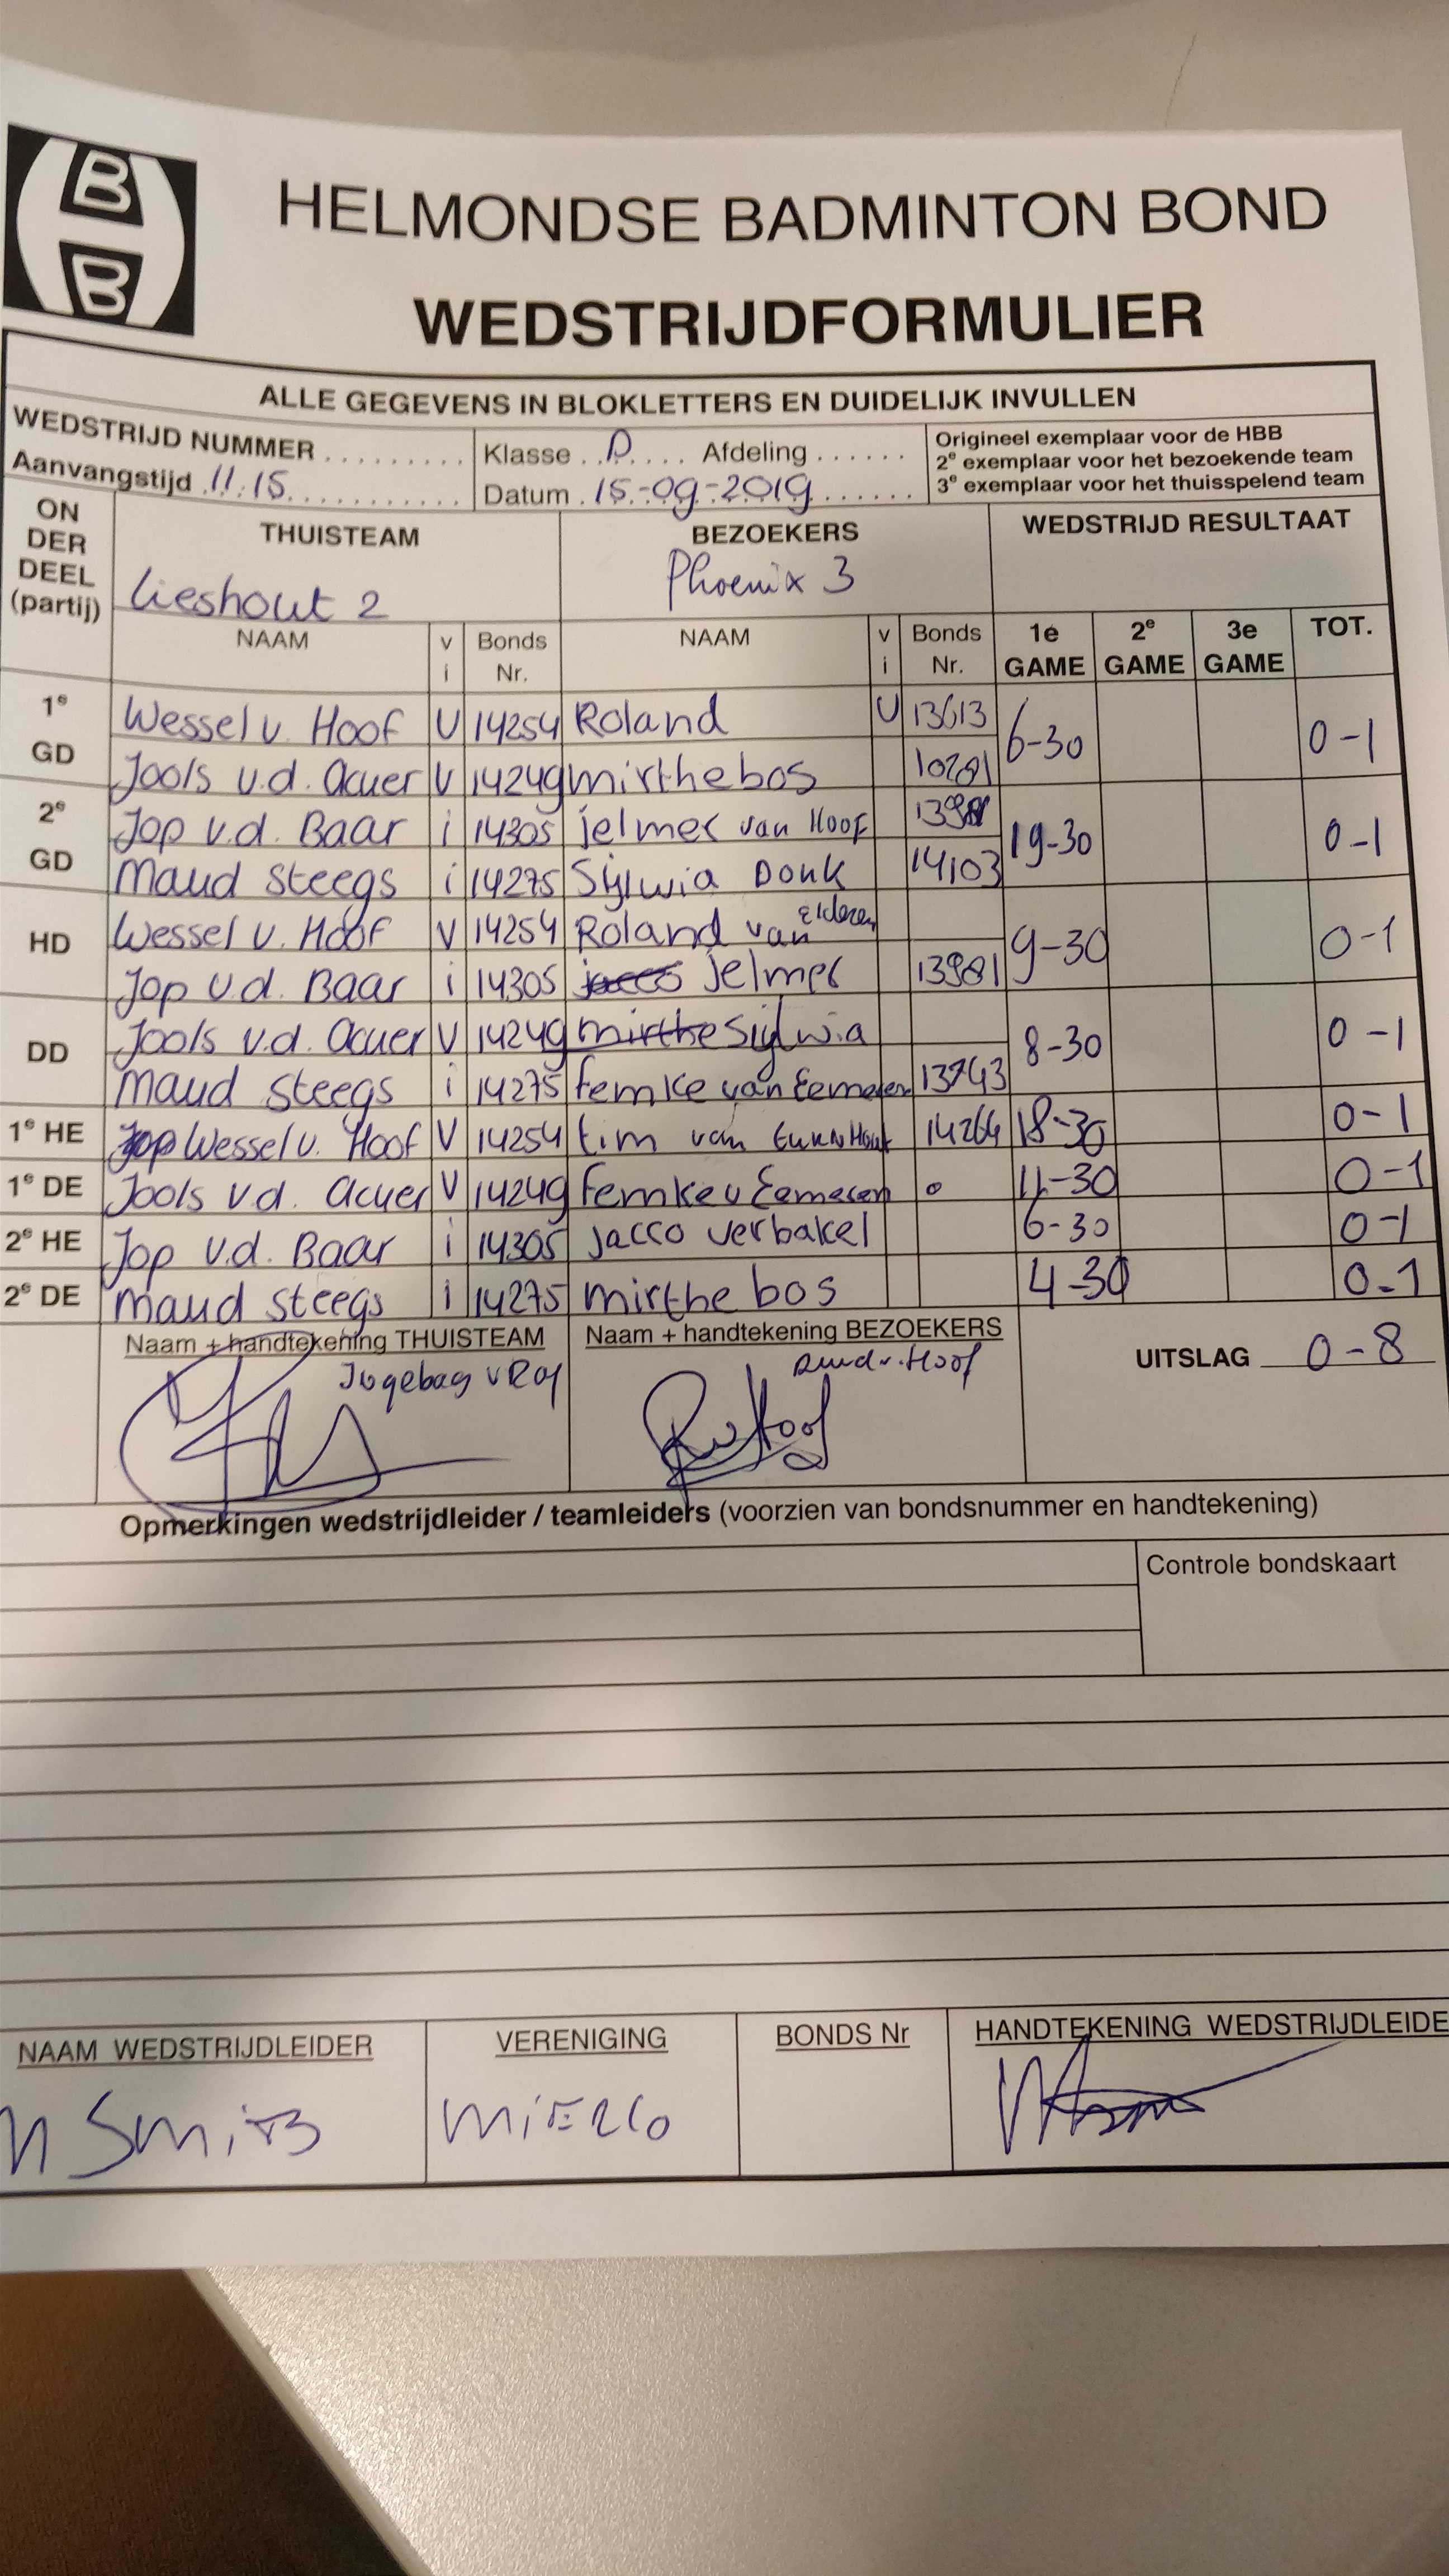 B
B
HELMONDSE BADMINTON BOND
WEDSTRIJDFORMULIER
ALLE GEGEVENS IN BLOKLETTERS EN DUIDELIJK INVULLEN
WEDSTRIJD NUMMER ......... Klasse ..D.... Afdeling ...... Origineel exemplaar voor de HBB
2e exemplaar voor het bezoekende team
Aanvangstijd 11.15 Datum 15-09-2019 3e exemplaar voor het thuisspelend team
ON DER DEEL (partij) THUISTEAM BEZOEKERS WEDSTRIJD RESULTAAT
Lieshout 2 Phoenix 3
NAAM v i Bonds Nr. NAAM v i Bonds Nr. 1e GAME 2e GAME 3e GAME TOT.
1e GD Wessel v. Hoof V 14254 Roland V 13613 6-30 0-1
Jools v.d. Acuer V 14249 mirthe bos
2e GD Jop v.d. Baar i 14305 jelmer van Hoof 19-30 0-1
Maud Steegs i 14275 Sylwia Donk 14103
HD Wessel v. Hoof V 14254 Roland van Elderen 9-30 0-1
Jop v.d. Baar i 14305 jelmer 13981
DD Jools v.d. Acuer V 14249 mirthe Sylwia 8-30 0-1
Maud Steegs i 14275 femke van Eemeren 13743
1e HE Jop Wessel v. Hoof V 14254 tim van 14264 18-30 0-1
1e DE Jools v.d. Acuer V 14249 Femke v Eemeren 11-30 0-1
2e HE Jop v.d. Baar i 14305 Jacco verbakel 6-30 0-1
2e DE Maud Steegs i 14275 mirthe bos 4-30 0-1
Naam + handtekening THUISTEAM Naam + handtekening BEZOEKERS UITSLAG 0-8
v. Hoof
Opmerkingen wedstrijdleider / teamleiders (voorzien van bondsnummer en handtekening)
Controle bondskaart
NAAM WEDSTRIJDLEIDER VERENIGING BONDS Nr HANDTEKENING WEDSTRIJDLEIDE
Smits MiErlo